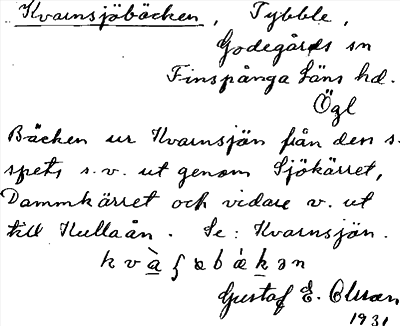 Kvarnsjöbäcken, Tybble,
Godegårds sn
Finspånga läns hd.
Ögl
Bäcken ur Kvarnsjön från den s.
spets s.v. ut genom Sjökärret,
Dammkärret och vidare v. ut
till Hullaån. Se: Kvarnsjön.
Gustaf E. Olsson
1931